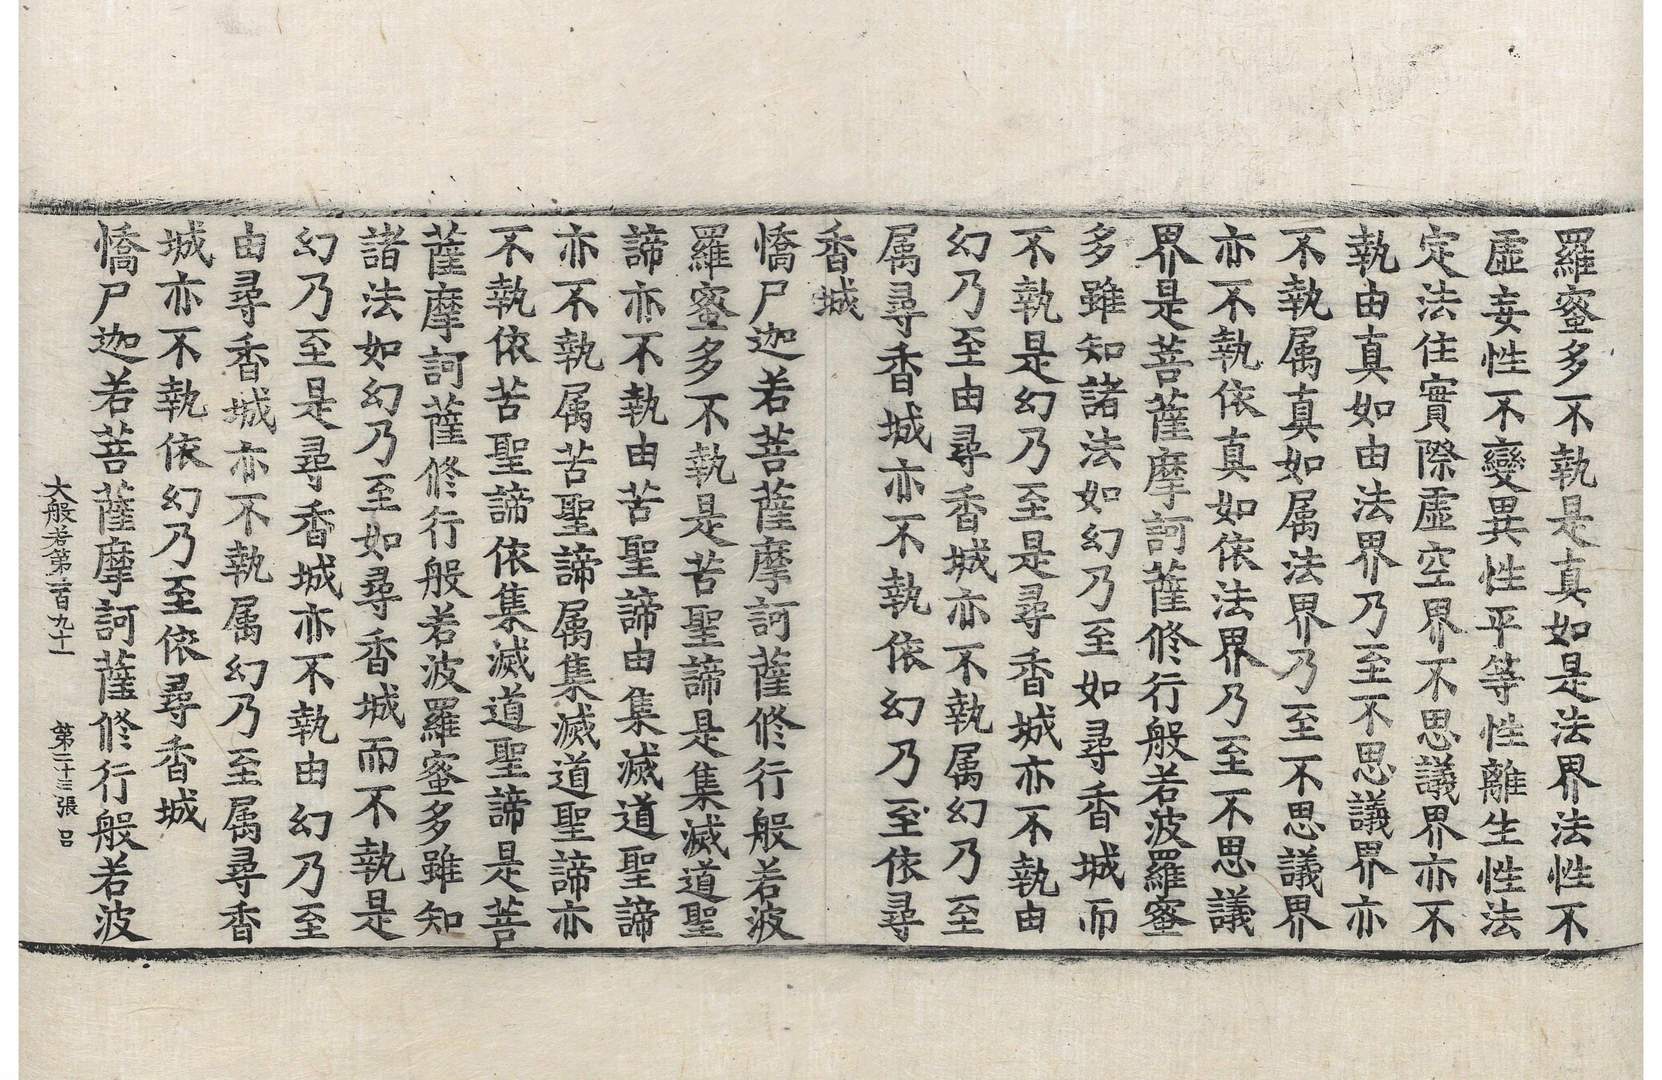 羅蜜多不執是真如是法界法性不
虛妄性不變異性平等性離生性法
定法住實際虛空界不思議界亦不
執由真如由法界乃至不思議界亦
不執属真如属法界乃至不思議界
亦不執依真如依法界乃至不思議
界是菩薩摩訶薩修行般若波羅蜜
多雖知諸法如幻乃至如尋香城而
不執是幻乃至是尋香城亦不執由
幻乃至由尋香城亦不執属幻乃至
属尋香城亦不執依幻乃至依尋
香城
憍尸迦若菩薩摩訶薩修行般若波
羅蜜多不執是苦聖諦是集滅道聖
諦亦不執由苦聖諦由集滅道聖諦
亦不執属苦聖諦属集滅道聖諦亦
不執依苦聖諦依集滅道聖諦是菩
薩摩訶薩修行般若波羅蜜多雖知
諸法如幻乃至如尋香城而不執是
幻乃至是尋香城亦不執由幻乃至
由尋香城亦不執属幻乃至属尋香
城亦不執依幻乃至依尋香城
憍尸迦若菩薩摩訶薩修行般若波
大般若第二百九十一 第二十三張 呂